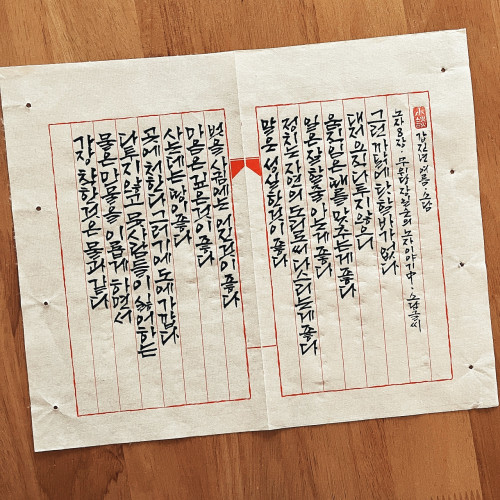 가장 착한 것은 물과 같다
물은 만물을 이롭게 하면서
다투지 않고 뭇 사람들이 싫어하는
곳에 처한다 그러기에 도에 가깝다
사는데는 땅이 좋다
마음은 깊은 것이 좋다
벗을 사귐에는 어진 이가 좋다
말은 성실한 것이 좋다
정치는 자연의 도리로써 다스리는게 좋다
일은 잘할줄 아는게 좋다
움직임은 때를 맞추는게 좋다
대저 오직 다투지 않으니
그런 까닭에 탓할 바가 없다
노자 8장 무위당 장일순의 노자이야기 中 소담글씨
갑진년 여름 소담